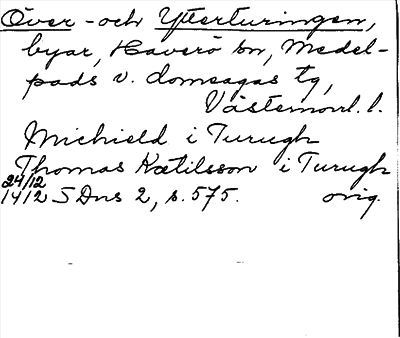 Över- och Ytterturingen,
byar, Haverö sn, Medel-
pads v. domsagas tg,
Västernorrl. l.
Michield i Turugh
Thomas Kætilsson i Turugh
24/12
1412 SDns 2, s. 575. orig.